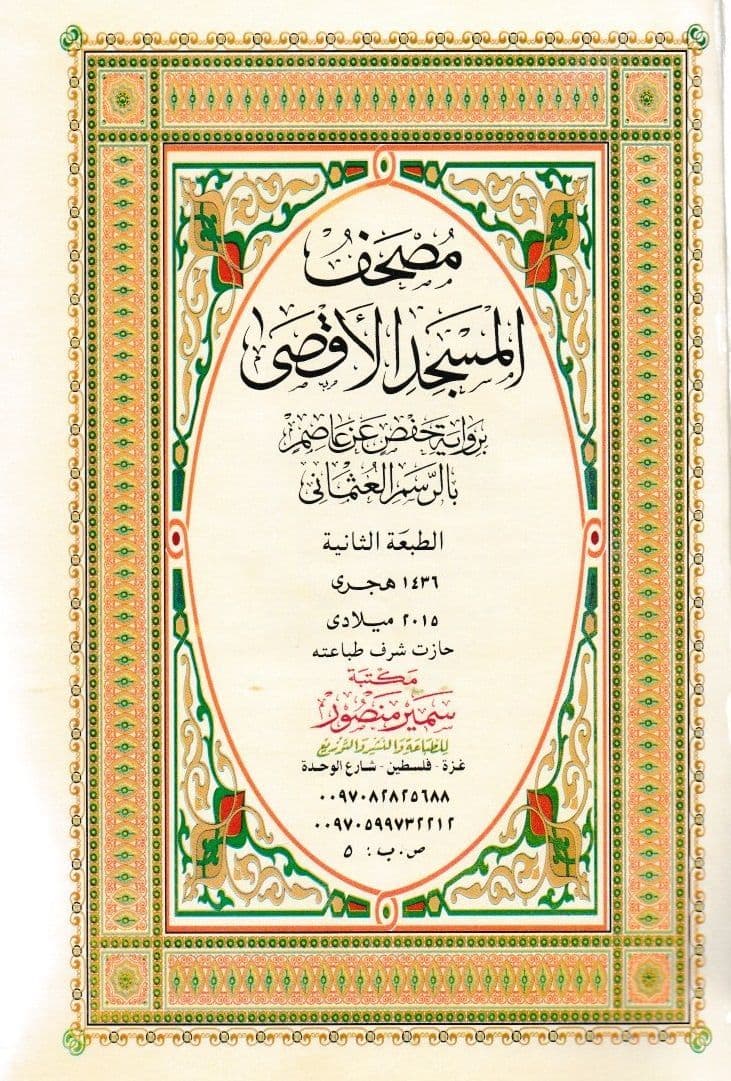 مُصْحَفُ
المَسْجِدِ الأَقْصَى
بروَايَة حَفْص عَنْ عَاصِم
بالرَّسْمِ العُثْمَانى
الطبعة الثانية
١٤٣٦ هجرى
٢٠١٥ ميلادى
حازت شرف طباعته
مكتبة
سَمير مَنصُور
للطباعة والنشر والتوزيع
غزة - فلسطين - شارع الوحدة
٠٠٩٧٠٨٢٨٢٥٦٨٨
٠٠٩٧٠٥٩٩٧٣٢٢١٢
ص . ب : ٥